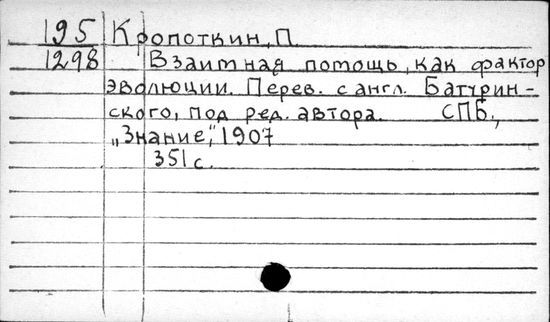 195 Кропоткин, П.
1298 Взаимная помощь, как фактор
эволюции. Перев. с англ. Батурин-
ского, под ред. автора. СПБ.,
„Знание", 1907
351 с.